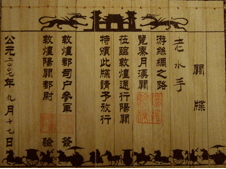 關牒
老水手
游絲綢之路
覽秦月漢關
茲臨敦煌進行陽關
特頒此牒請予放行
敦煌郡司戶參軍 簽
敦煌陽關都尉 驗
公元二〇〇七年九月十七日